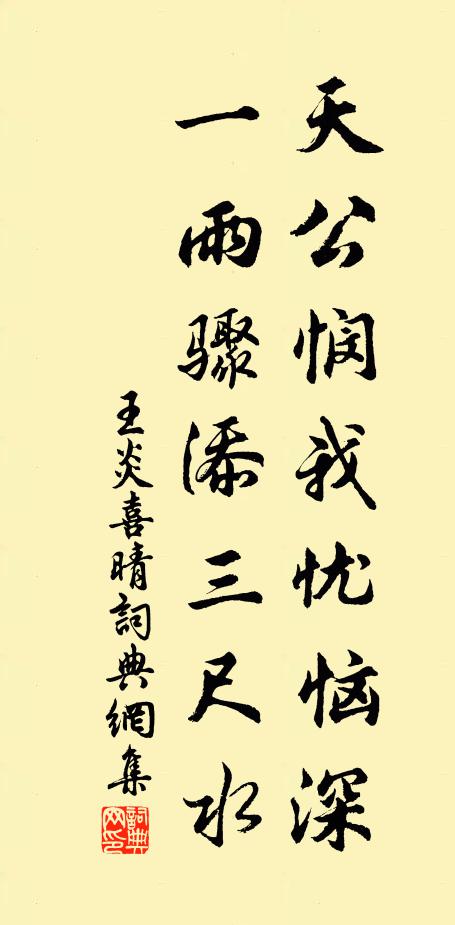 天公悯我忧恼深
一雨骤添三尺水
王炎喜晴詞典網集
詞典
网印